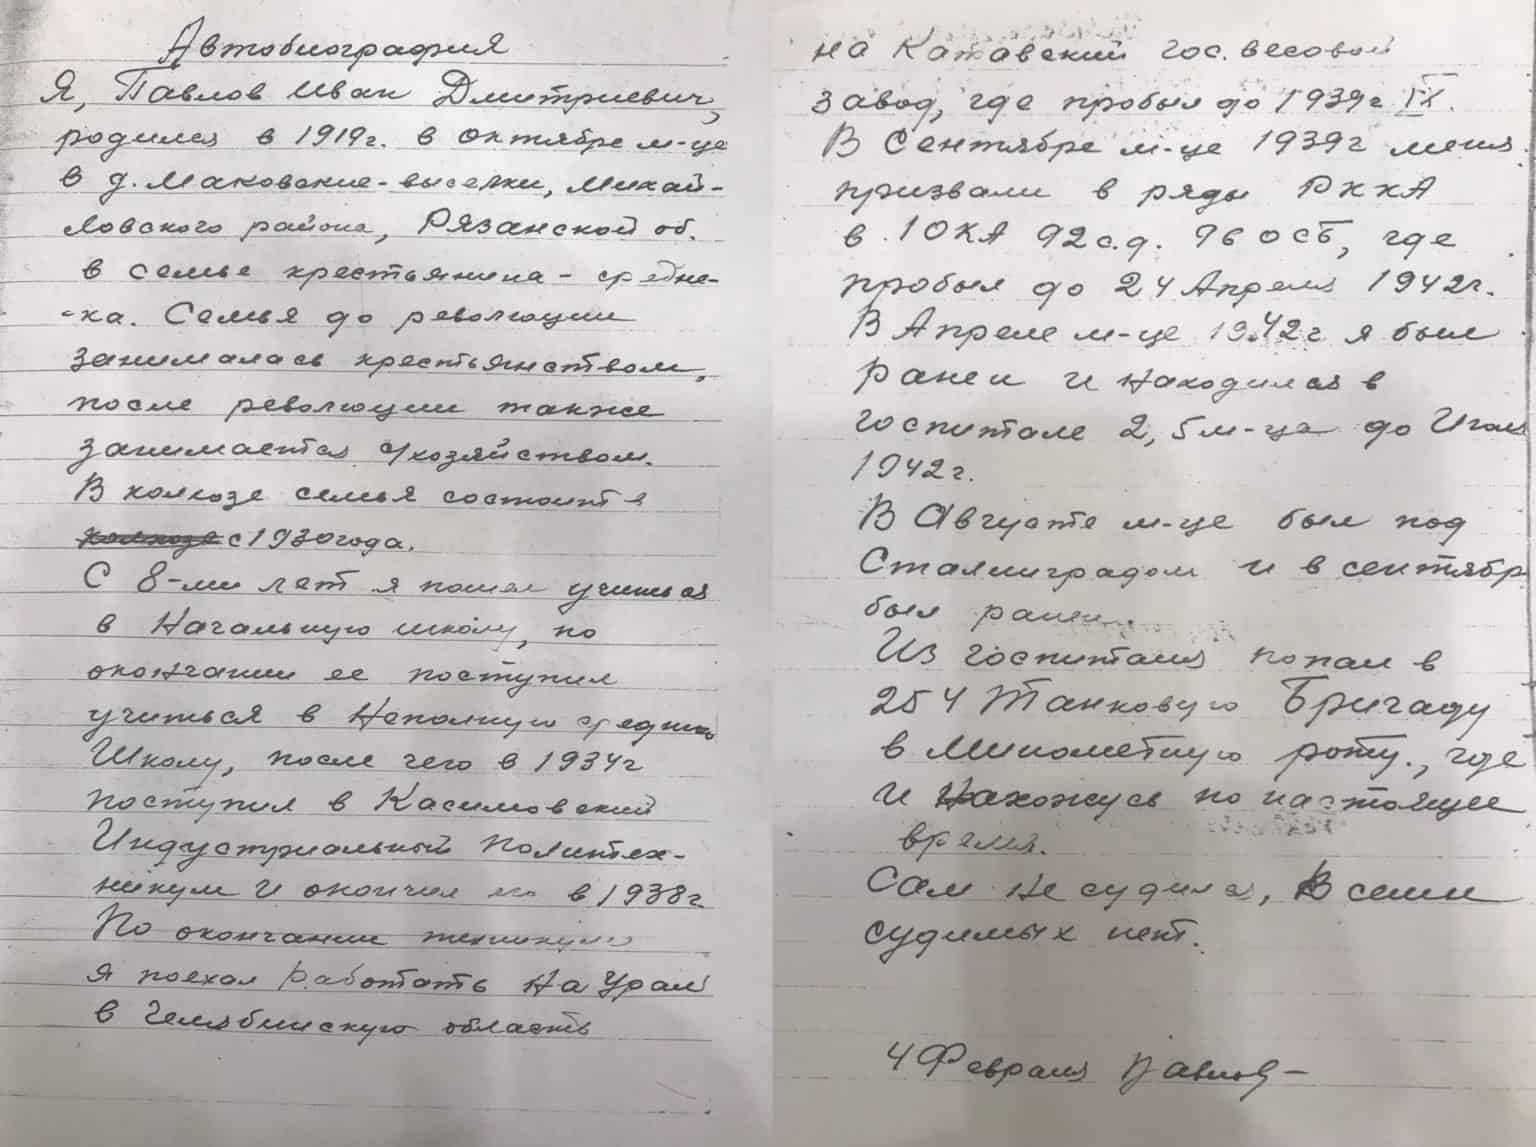 Автобиография
Я, Павлов Иван Дмитриевич,
родился в 1919г. в октябре м-це
в д. Маковские-выселки, Михай-
ловского района, Рязанской об.
в семье крестьянина - средня-
-ка. Семья до революции
занималась крестьянством,
после революции также
занимается с/хозяйством.
В колхозе семья состоит
колхозе с 1930 года.
С 8-ми лет я пошел учиться
в Начальную школу, по
окончании ее поступил
учиться в Неполную средню
Школу, после чего в 1934г
поступил в Касимовский
Индустриальный Политех-
никум и окончил его в 1938г
По окончании техникума
я поехал работать на Урал
в Челябинскую область
на Катавский гос. весовой
завод, где пробыл до 1939г IX.
В Сентябре м-це 1939г меня
призвали в ряды РККА
в 1ОКА 92с.д. 96 ОСБ, где
пробыл до 24 Апреля 1942г.
В Апреле м-це 1942г я был
ранен и находился в
госпитале 2,5 м-ца до Июля
1942г.
В Августе м-це был под
Сталинградом и в сентябр
был ранен.
Из госпиталя попал в
254 Танковую Бригаду
в Минометную роту., где
и Нахожусь по настоящее
время.
Сам не судился, В семье
судимых нет.
4 Февраля Павлов